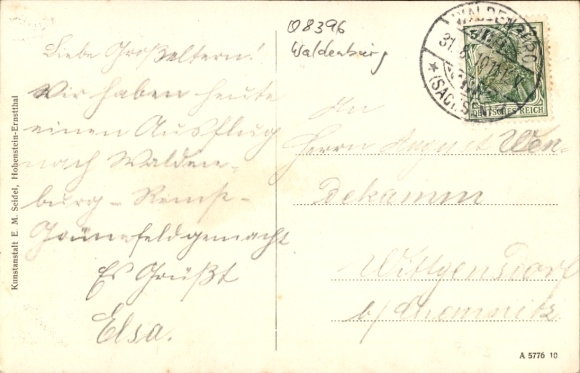 08396
Waldenburg
Liebe Großeltern!
Wir haben heute
einen Ausflug
nach Walden-
burg - Remse-
Grünefeld gemacht
Es Grüßt
Elsa.
WALDENBURG
(SACHSEN)
DEUTSCHES REICH
An
Herrn August Wen-
dekamm
Wittgensdorf
b/Chemnitz
Kunstanstalt E. M. Seidel, Hohenstein-Ernstthal
A 5776 10